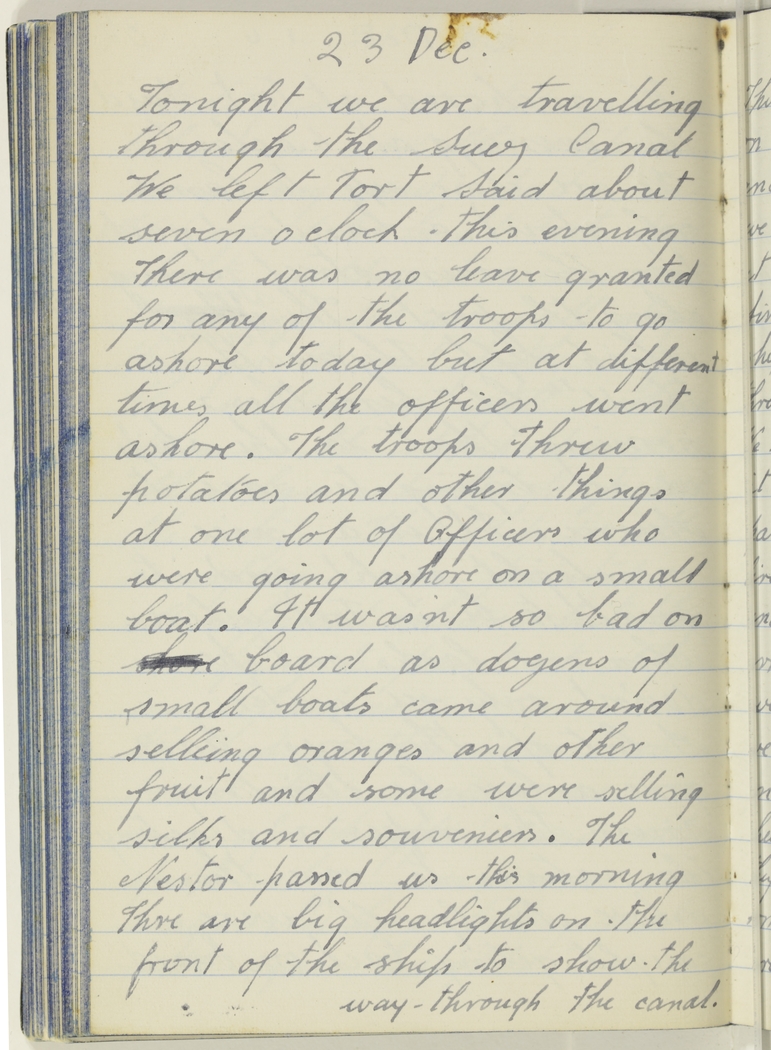 23 Dec.
Tonight we are travelling
through the Suez Canal
We left Port Said about
seven o clock this evening
There was no leave granted
for any of the troops to go
ashore today but at different
times all the officers went
ashore. The troops threw
potatoes and other things
at one lot of Officers who
were going ashore on a small
boat. It wasn't so bad on
shore board as dozens of
small boats came around
selling oranges and other
fruit and some were selling
silks and souveniers. The
Nestor passed us this morning
Thre are big headlights on the
front of the ship to show the
way through the canal.